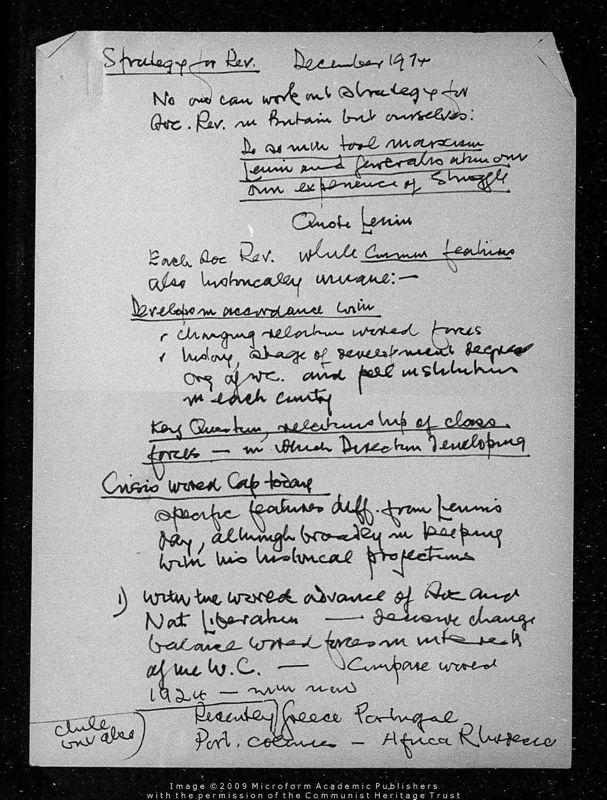 Strategy for Rev. December 1974
No one can work out strategy for
Soc. Rev. in Britain but ourselves:
Do so with tool marxism
Lenin and generalisation our
own experience of struggle
Quote Lenin
Each Soc Rev. while common features
also historically unique:-
Develops in accordance with
changing relation world forces
history, stage of development degree
org of w.c. and pol institutions
in each country
Key Question, relationship of class
forces - in which Direction Developing
Crisis world Cap today
specific features diff. from Lenin's
day, although broadly in keeping
with his historical projections
1) with the world advance of Soc and
Nat Liberation - decisive change
balance world forces in interests
of the W.C. - Compare world
1924 - with now
Recently Greece Portugal
Port. colonies - Africa Rhodesia
Chile
but also
Image ©2009 Microform Academic Publishers
with the permission of the Communist Heritage Trust